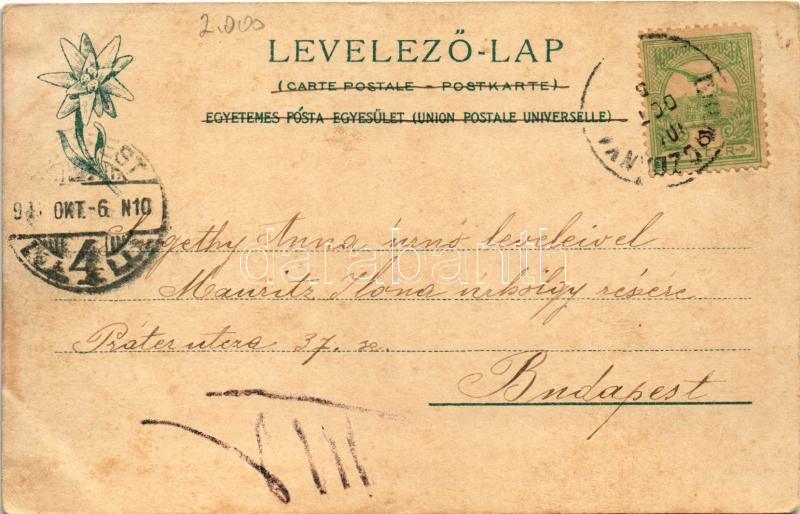 2.000
LEVELEZŐ-LAP
(CARTE POSTALE - POSTKARTE)
EGYETEMES PÓSTA EGYESÜLET (UNION POSTALE UNIVERSELLE)
MAGYAR KIR. POSTA
OKT.-6. N10
4
Anna úrnő leveleivel
Mauritz Ilona úrhölgy részére
Práter utcza 37. sz.
Budapest
VIII
darabanth